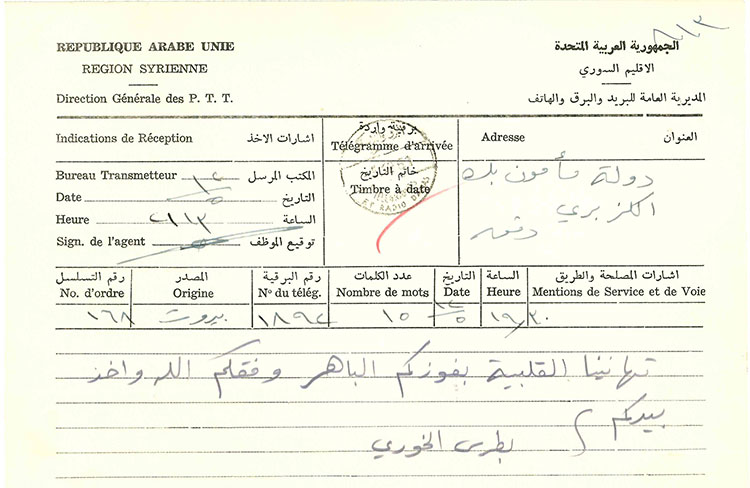 ٨١٣
REPUBLIQUE ARABE UNIE
الجمهورية العربية المتحدة
REGION SYRIENNE
الاقليم السوري
Direction Générale des P. T. T.
المديرية العامة للبريد والبرق والهاتف
Indications de Réception اشارات الاخذ
برقية واردة
Télégramme d'arrivée
Adresse العنوان
Bureau Transmetteur المكتب المرسل
خاتم التاريخ
Timbre à date
دولة مأمون بك
Date التاريخ
الكزبري
Heure ٢١١٣ الساعة
دمشق
Sign. de l'agent توقيع الموظف
ET RADIO
رقم التسلسل المصدر رقم البرقية عدد الكلمات التاريخ الساعة اشارات المصلحة والطريق
No. d'ordre Origine Nº du télég. Nombre de mots Date Heure Mentions de Service et de Voie
١٦٨ بيروت ١٨٩٢ ١٥ ١٩/٣٠
تهانينا القلبية بفوزكم الباهر وفقكم الله واخذ
بيدكم
بطرس الخوري